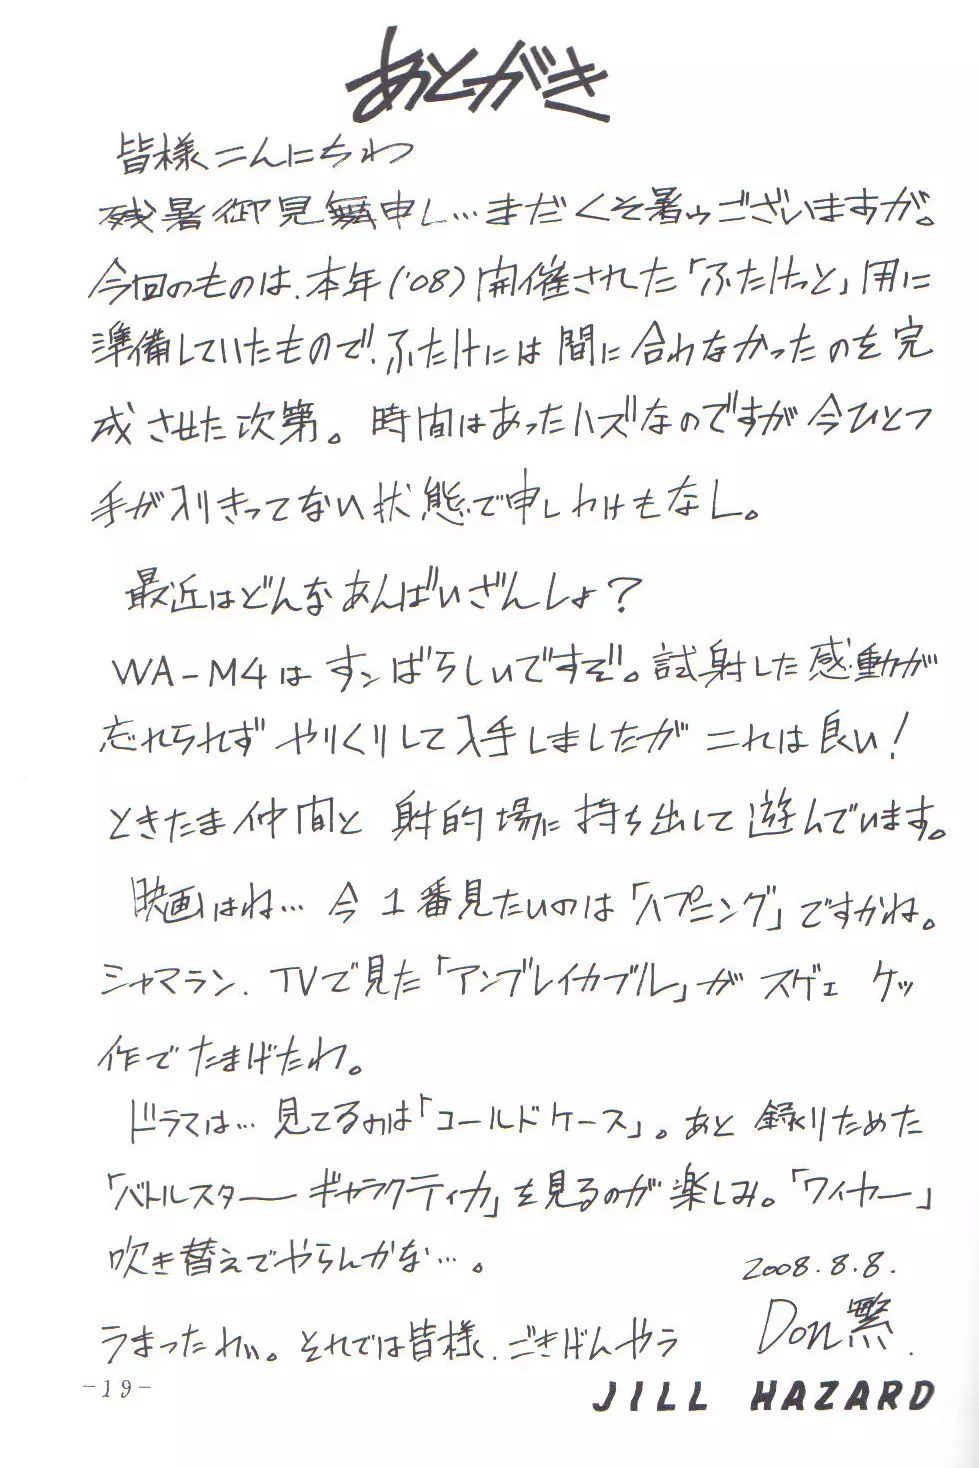 あとがき
皆様こんにちわ
残暑御見舞申し…まだくそ暑ゥございますが。
今回のものは、本年('08)開催された「ふたけっと」用に
準備していたもので、ふたけには間に合わなかったのを完
成させた次第。時間はあったハズなのですが今ひとつ
手が入りきってない状態で申しわけもなし。
最近はどんなあんばいざんしょ？
WA-M4はすンばらしいですぞ。試射した感動が
忘れられず やりくりして入手しましたが これは良い！
ときたま仲間と 射的場に持ち出して遊んでいます。
映画はね… 今1番見たいのは「ハプニング」ですかね。
シャマラン、TVで見た「アンブレイカブル」がスゲェ ケッ
作でたまげたわ。
ドラマは… 見てるのは「コールドケース」。あと 録りためた
「バトルスターギャラクティカ」を見るのが楽しみ。「ワイヤー」
吹き替えでやらんかな…。
2008.8.8.
うまったわい。それでは皆様、ごきげんやう
Don繁.
-19-
JILL HAZARD